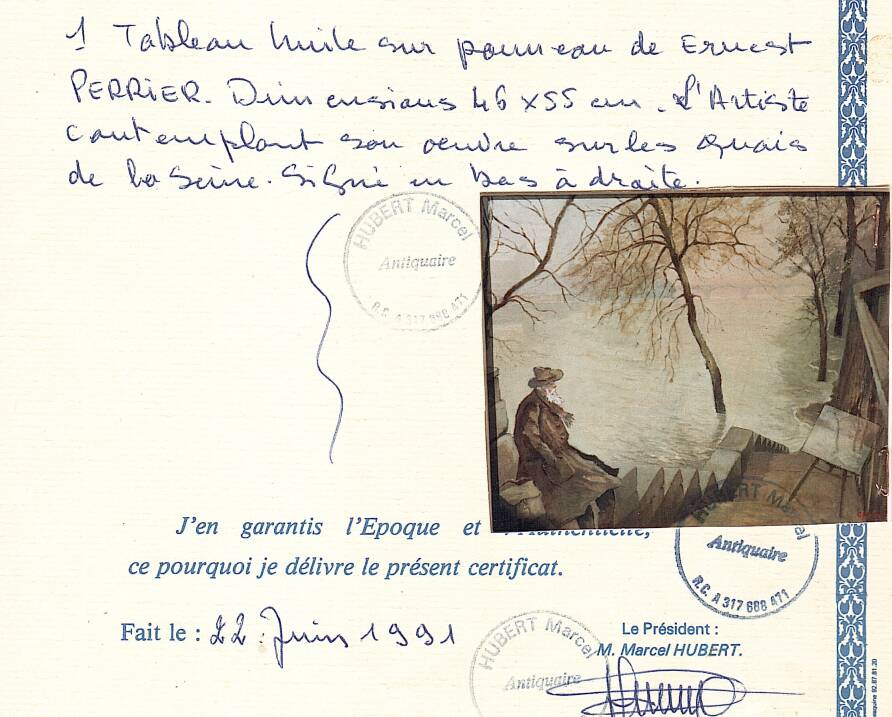 1 Tableau huile sur panneau de Ernest
PERRIER. Dimensions 46 x 55 cm. L'Artiste
contemplant son oeuvre sur les Quais
de la Seine. Signé en bas à droite.
HUBERT Marcel
Antiquaire
R.C. A 317 688 471
J'en garantis l'Epoque et
ce pourquoi je délivre le présent certificat.
HUBERT Marcel
Antiquaire
R.C. A 317 688 471
Fait le : 22 Juin 1991
Le Président :
M. Marcel HUBERT.
HUBERT Marcel
Antiquaire